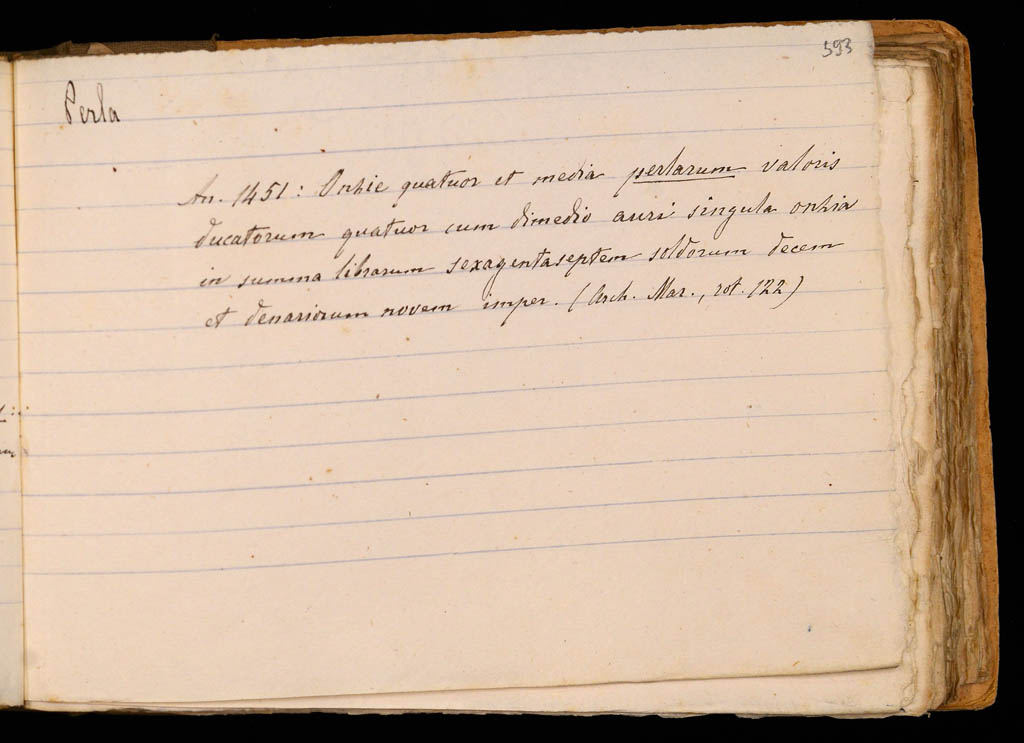 593
Perla
An. 1451: Onhie quatuor et media perlarum valoris
ducatorum quatuor cum dimedio auri singula onhia
in summa librarum sexagentaseptem soldorum decem
et denariorum novem imper. (Arch. Mar., rot. 122)